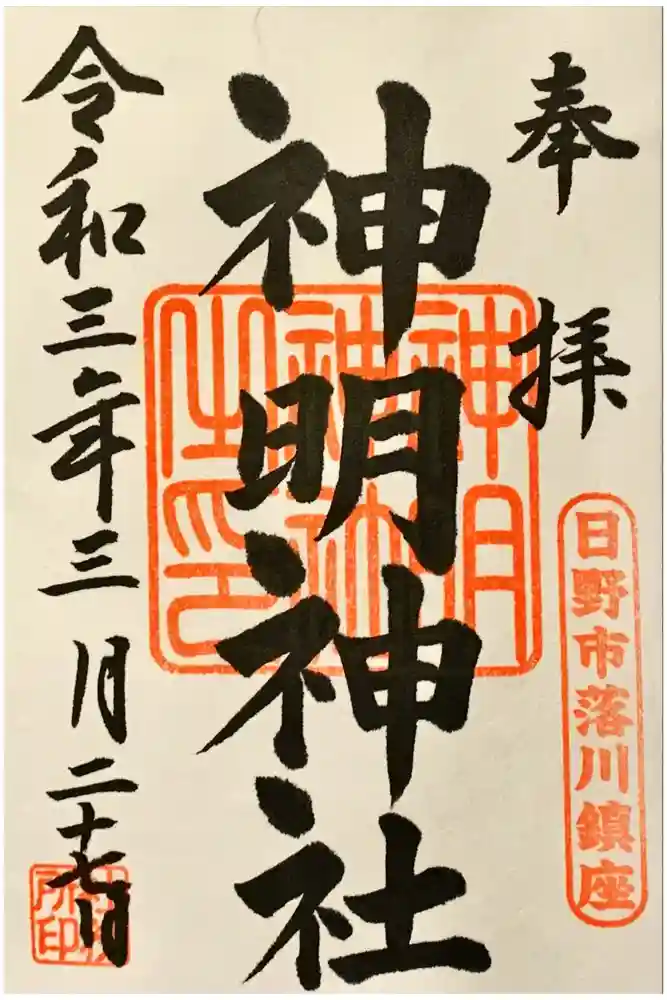 奉拝
日野市落川鎮座
神明神社
神明神社之印
令和三年三月二十七日
社務所印